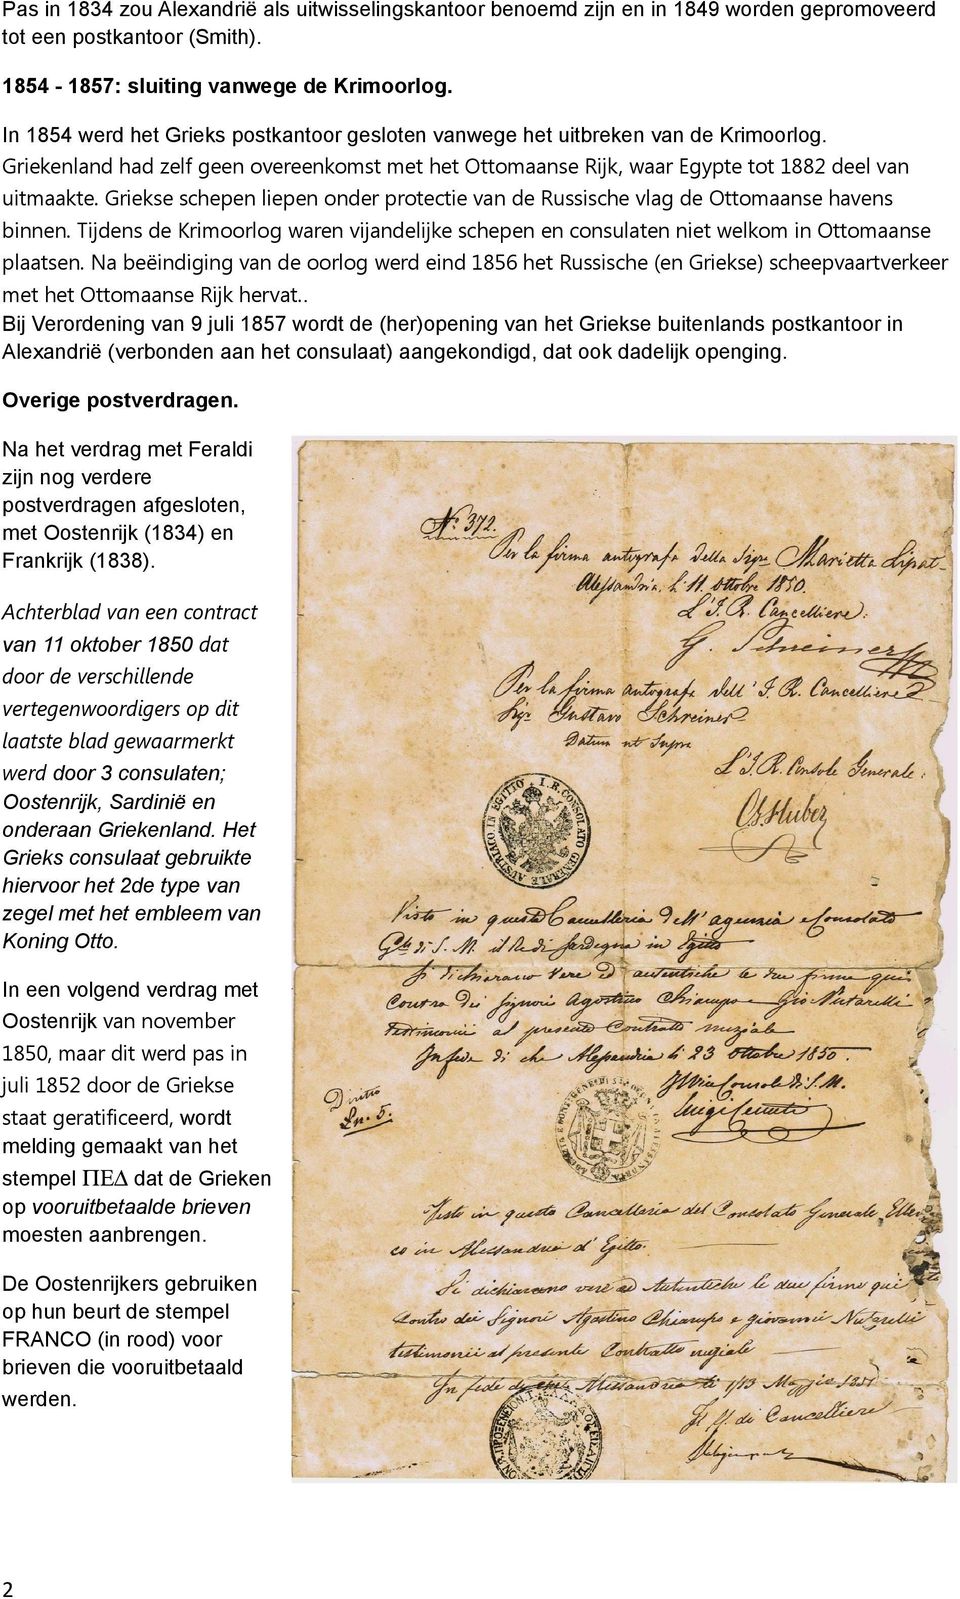 Pas in 1834 zou Alexandrië als uitwisselingskantoor benoemd zijn en in 1849 worden gepromoveerd
tot een postkantoor (Smith).
1854 - 1857: sluiting vanwege de Krimoorlog.
In 1854 werd het Grieks postkantoor gesloten vanwege het uitbreken van de Krimoorlog.
Griekenland had zelf geen overeenkomst met het Ottomaanse Rijk, waar Egypte tot 1882 deel van
uitmaakte. Griekse schepen liepen onder protectie van de Russische vlag de Ottomaanse havens
binnen. Tijdens de Krimoorlog waren vijandelijke schepen en consulaten niet welkom in Ottomaanse
plaatsen. Na beëindiging van de oorlog werd eind 1856 het Russische (en Griekse) scheepvaartverkeer
met het Ottomaanse Rijk hervat..
Bij Verordening van 9 juli 1857 wordt de (her)opening van het Griekse buitenlands postkantoor in
Alexandrië (verbonden aan het consulaat) aangekondigd, dat ook dadelijk openging.
Overige postverdragen.
Na het verdrag met Feraldi
zijn nog verdere
postverdragen afgesloten,
met Oostenrijk (1834) en
Frankrijk (1838).
Achterblad van een contract
van 11 oktober 1850 dat
door de verschillende
vertegenwoordigers op dit
laatste blad gewaarmerkt
werd door 3 consulaten;
Oostenrijk, Sardinië en
onderaan Griekenland. Het
Grieks consulaat gebruikte
hiervoor het 2de type van
zegel met het embleem van
Koning Otto.
In een volgend verdrag met
Oostenrijk van november
1850, maar dit werd pas in
juli 1852 door de Griekse
staat geratificeerd, wordt
melding gemaakt van het
stempel ΠΕΔ dat de Grieken
op vooruitbetaalde brieven
moesten aanbrengen.
De Oostenrijkers gebruiken
op hun beurt de stempel
FRANCO (in rood) voor
brieven die vooruitbetaald
werden.
No. 372.
Per la firma autografa della Sigra Marietta Lipat-
Alessandria, li 11. ottobre 1850.
L'I. R. Cancelliere:
G. Schreiner
Per la firma autografa dell' I. R. Cancelliere
Sigr Gustavo Schreiner
Datum ut Supra
L'I. R. Console Generale:
Huber
I. R. CONSOLATO GENERALE AUSTRIACO IN EGITTO
Visto in questa Cancelleria dell' agenzia e Consolato
Gle di S. M. il Re di Sardegna in Egitto
Si dichiarano vere ed autentiche le due firme qui
Contro dei Signori Agostino Chiampo e Gio Nutarelli
testimonii al presente Contratto nuziale
In fede di che Alessandria li 23 ottobre 1850.
Il Vice Console di S. M.
Luigi Cerruti
Diritto
Ln. 5:
Visto in questa Cancelleria del Consolato Generale Elleni
co in Alessandria d' Egitto.
Si dichiarano vere ed autentiche le due firme qui
Contro dei Signori Agostino Chiampo e giovanni Nutarelli
testimonii al presente Contratto nuziale
In fede di che Alessandria li 1/13 Maggio 1851
di Cancelliere
2